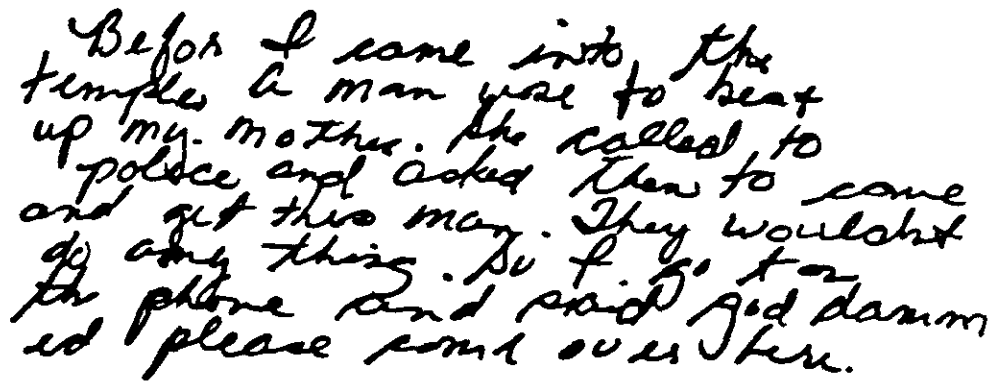 Befor I came into the
temple, a man use to beat
up my. mother. She called to
police and asked them to come
and get this man. They wouldn't
do any thing. So I got on
the phone and said god damm
it please come over here.